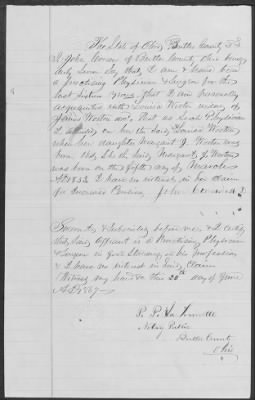 The State of Ohio Butler County SS
I John Corson of Butler County Ohio being
duly Sworn Say that I am & have been
a practising Physician & Surgeon for the
last sixteen years, that I am personally
acquainted with Louisa Weston widow of
James Weston decd. That as Such Physician
I attended on her the Said Louisa Weston
when her daughter Margaret J. Weston was
born. that She the Said Margaret J. Weston
was born on the fifth day of March
AD 1852 I have no interest in her claim
for increased Pension. John
Sworn to & Subscribed before me & I certify
that Said Affiant is a Practising Physician
& Surgeon in Good Standing in his profession
& I have no interest in Said Claim
Witness my hand & this 20th day of June
AD 1867
P. P.
Notary Public
Butler County
Ohio